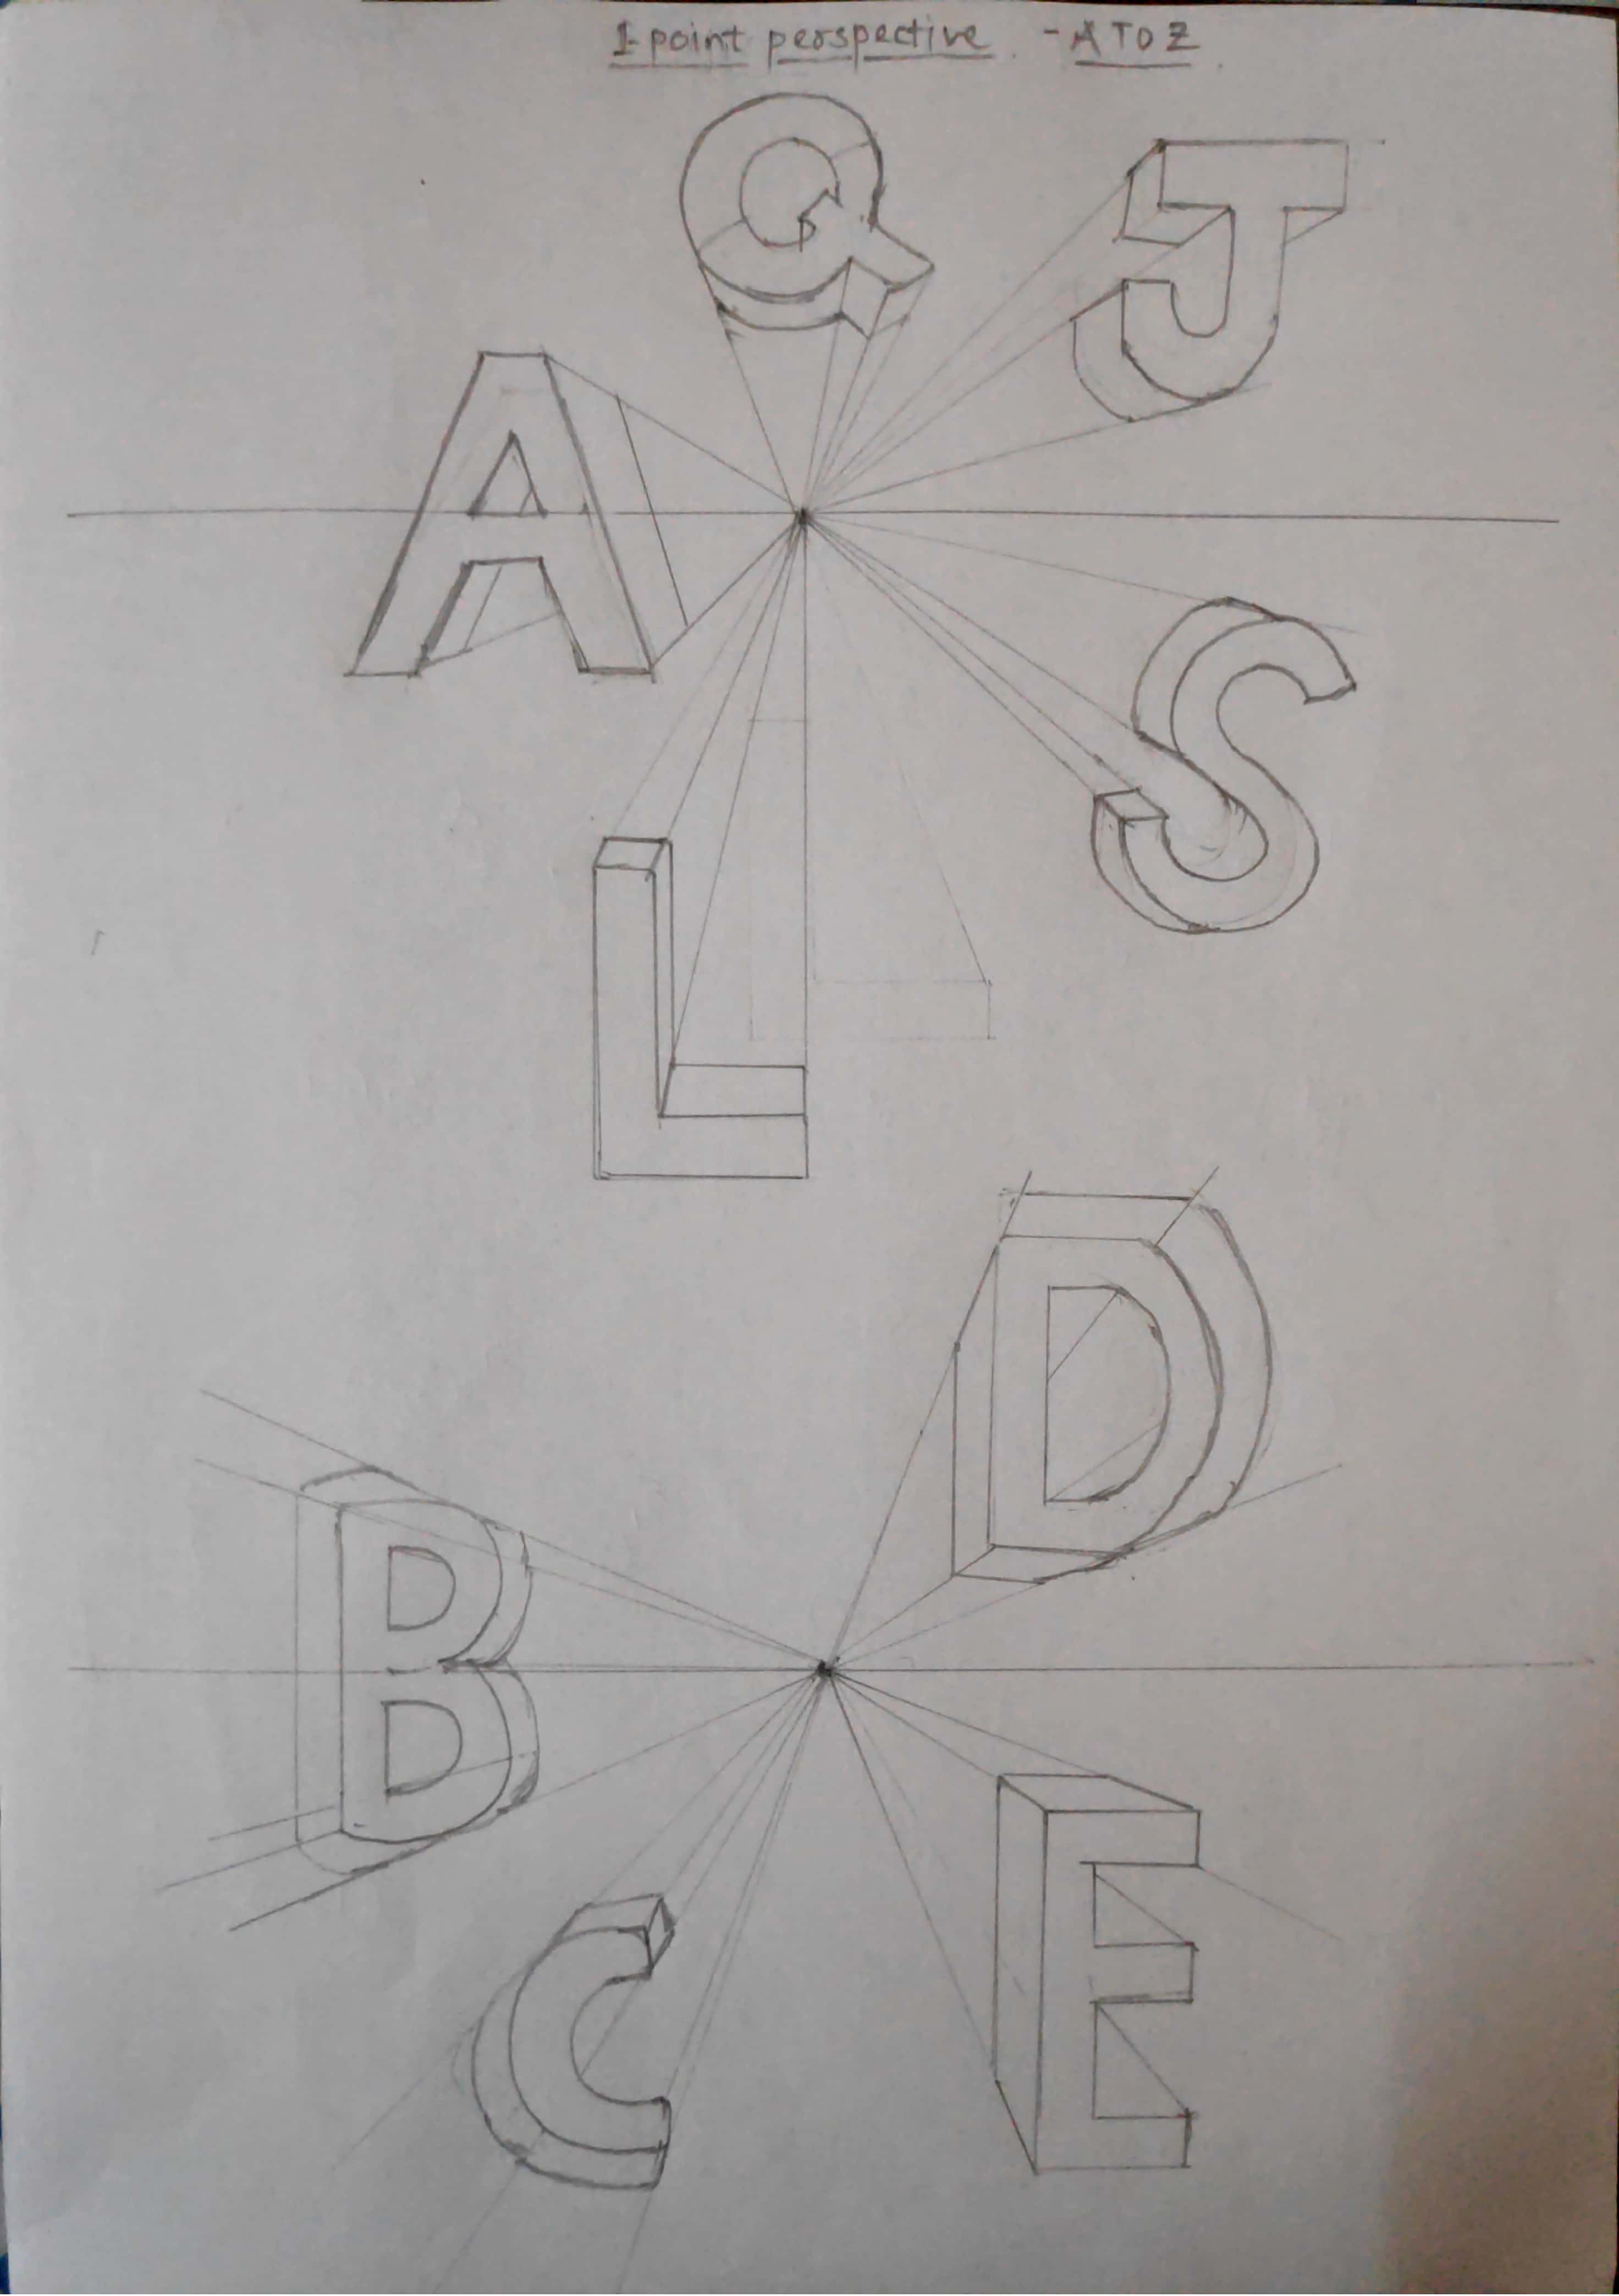 1-point perspective - A TO Z
Q J
A
S
L
D
B
C E